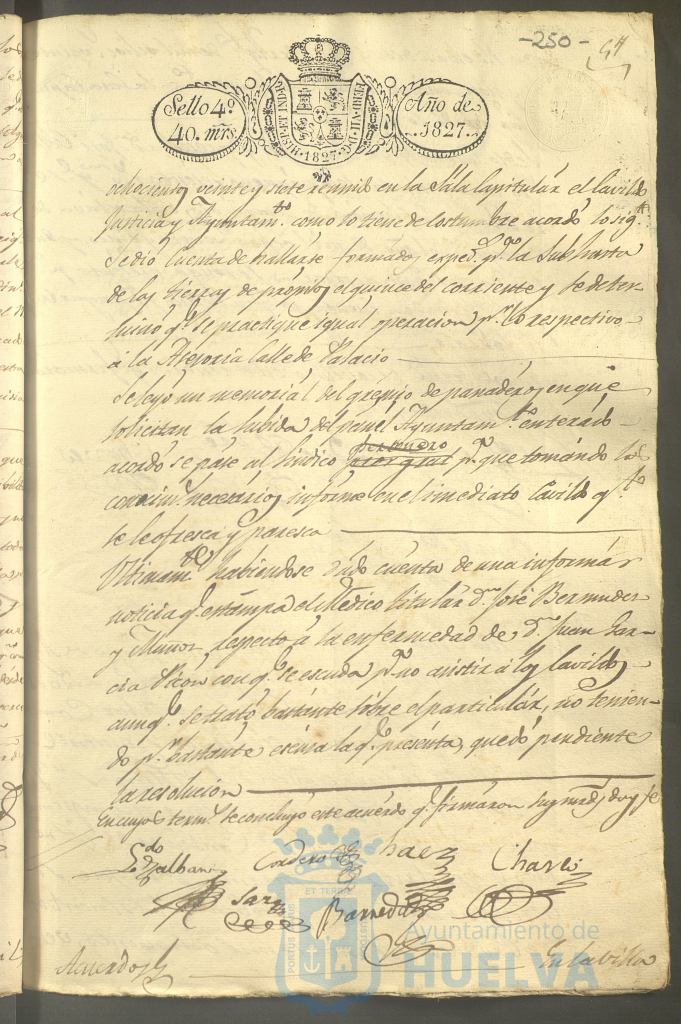 -250-
Sello 4º
40. mrs.
HISP. ET IND. R.
FERD. VII. D. G.
1827
Año de
1827.
ochocientos veinte y siete reunido en la Sala Capitular el Cavildo
Justicia y Ayuntam.to como lo tiene de costumbre acordó lo sig.te
Se dio cuenta de hallarse formados exped. p.a la Subhasta
de las tierras de propios el quince del corriente y se deter-
minó q.e se practique igual operacion p.r lo respectivo
á la Atesoria Calle de Palacio
Se leyó un memorial del gremio de panaderos en que
solicitan la subida del pan: el Ayuntam.to enterado
acordó se pase al Sindico personero p.a que tomando los
conocim.s necesarios informe en el imediato Cavildo q.to
se le ofresca y paresca
Ultimam.te habiendose dado cuenta de una informar
noticia q.e estampa el Medico titular D.n José Bermudez
y Muñoz respecto á la enfermedad de D.n Juan Gar-
cia Picon con q.e se escuda p.a no asistir á los Cavildos,
aunq.e se trató bastante sobre el particular, no tenien-
do p.r bastante escusa la q.e presenta, quedó pendiente
la resolucion
En cuyos term.s se concluyó este acuerdo q.e firmaron sus mrds doy fe
Cordero
Chaves
Barreda
Acuerdo
En la villa
PORTUS MARIS ET TERRAE CUSTODIA
Ayuntamiento de
HUELVA